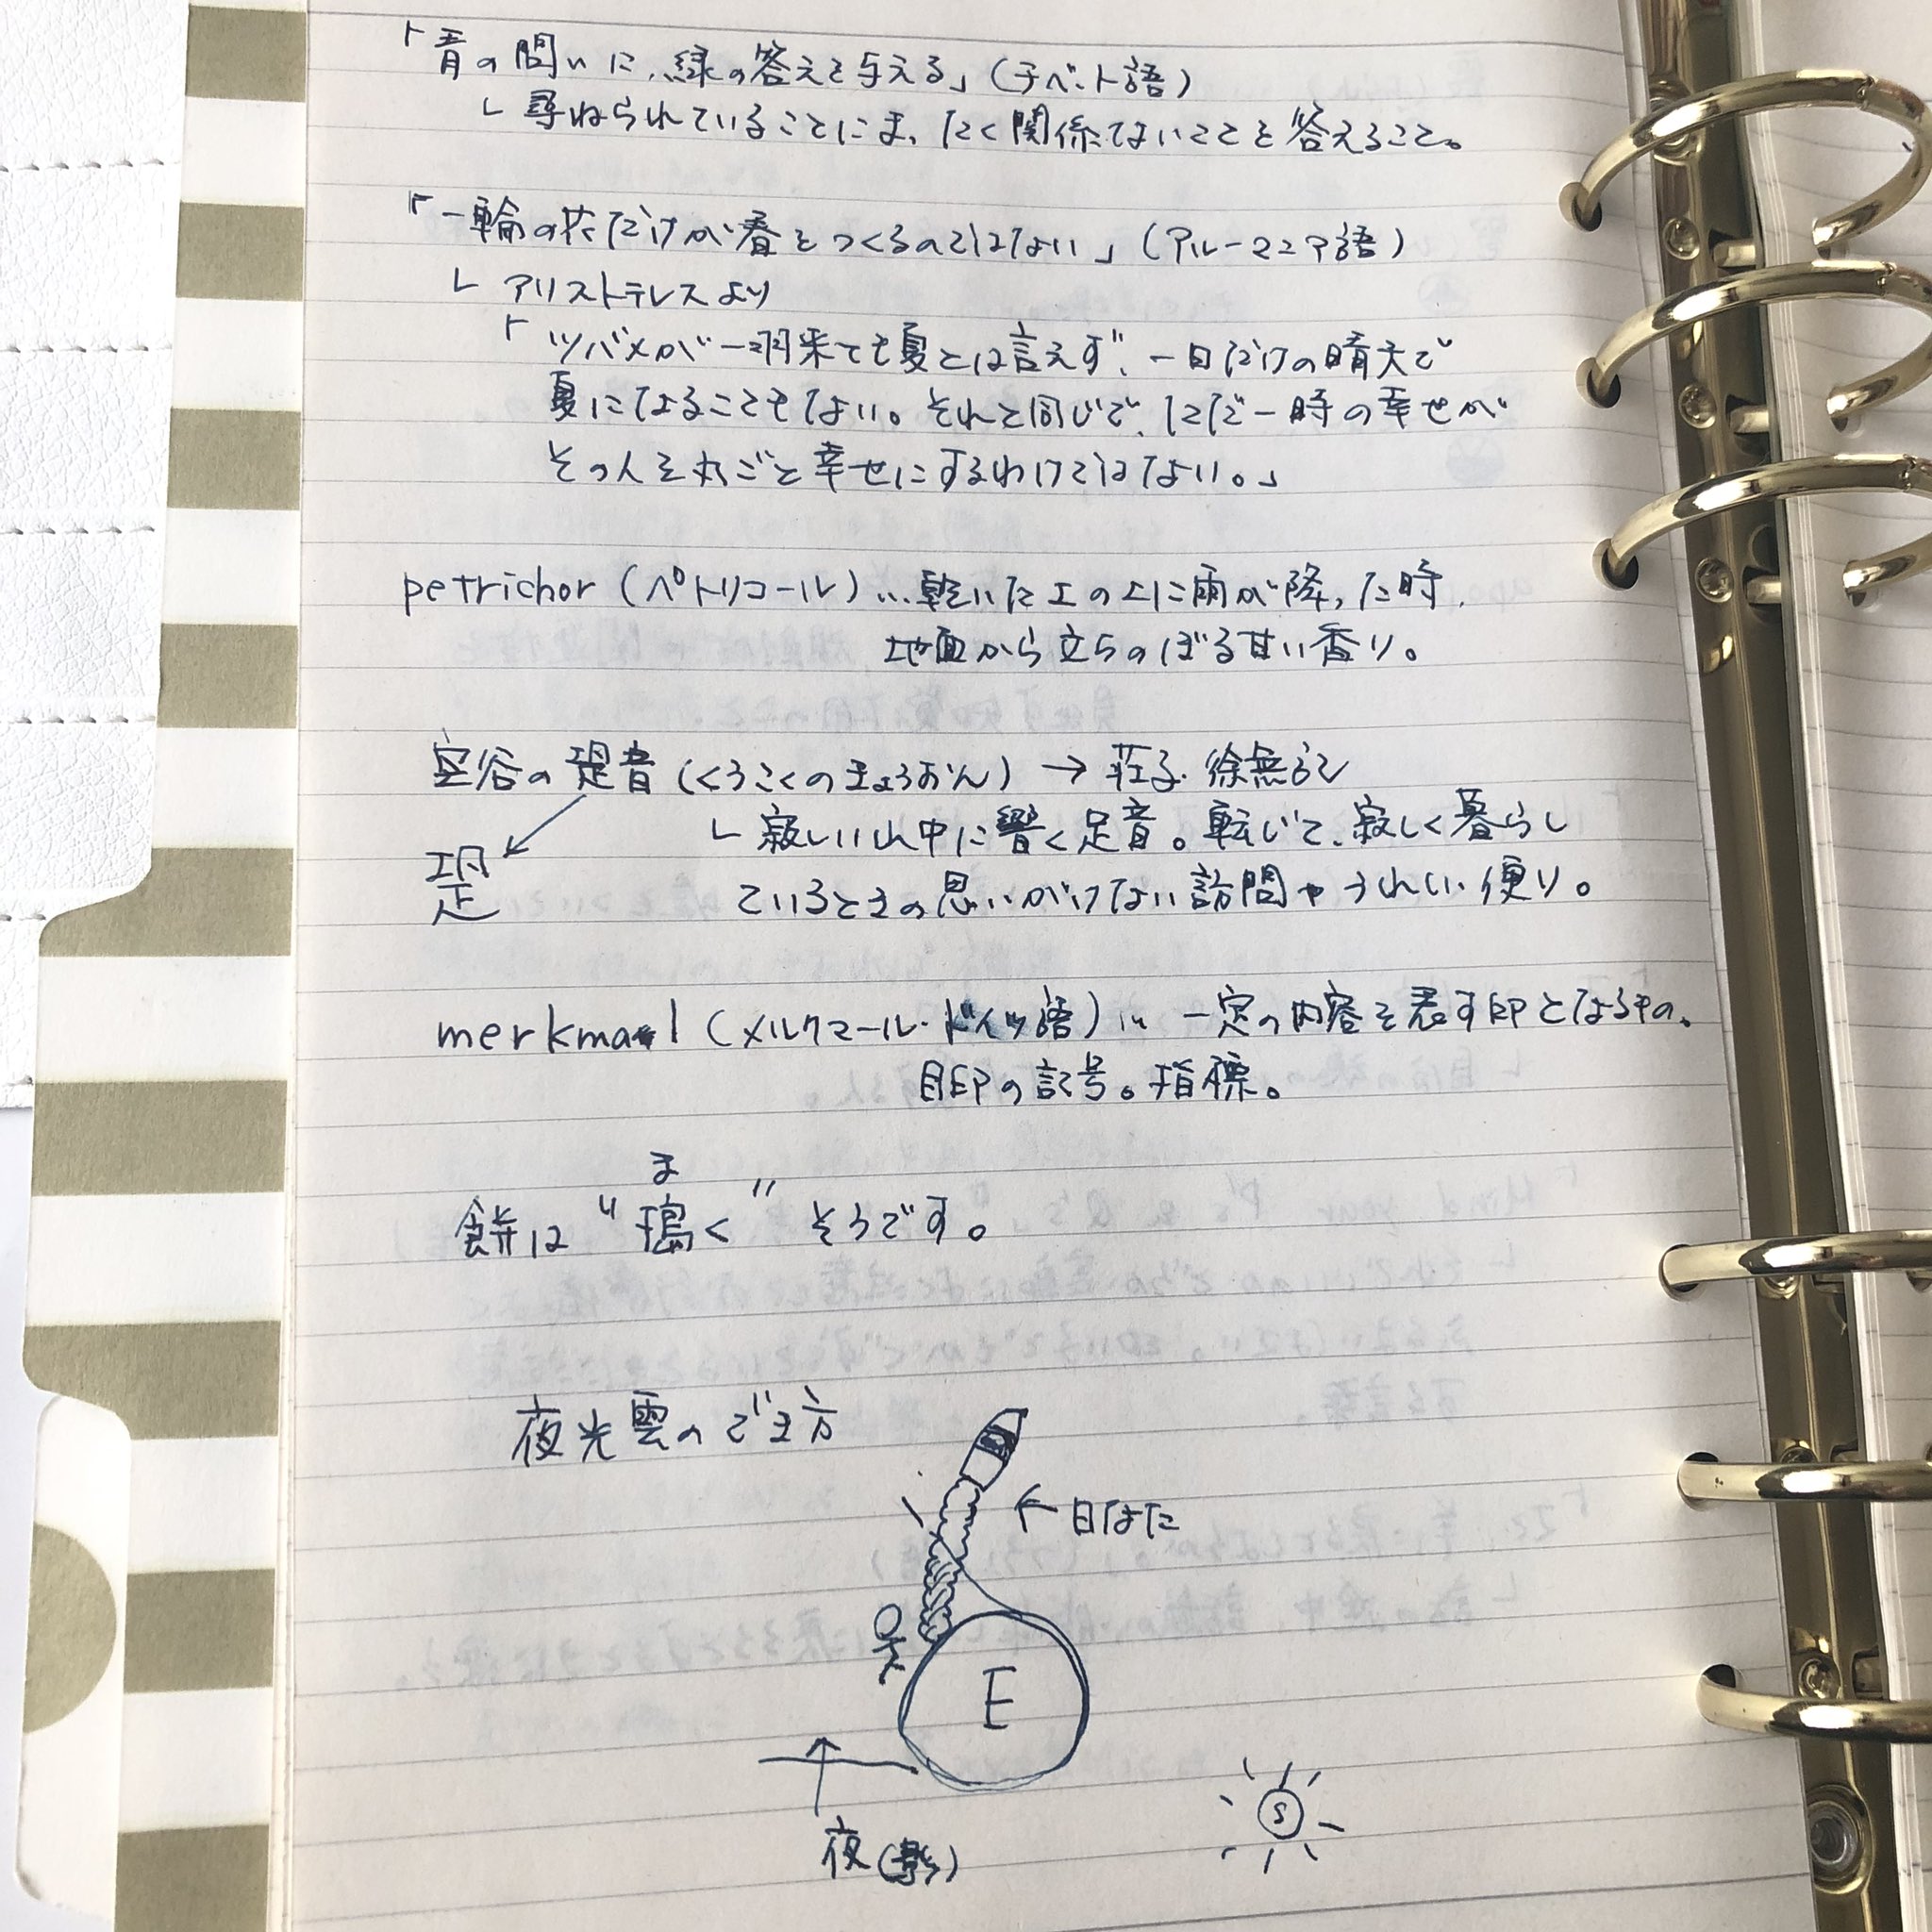 「青の問いに、緑の答えを与える」(チベット語)
└ 尋ねられていることにまったく関係ないことを答えること。
「一輪の花だけが春をつくるのではない」(アルーマニア語)
└ アリストテレスより
「ツバメが一羽来ても夏とは言えず、一日だけの晴天で
夏になることもない。それと同じで、ただ一時の幸せが
その人を丸ごと幸せにするわけではない。」
petrichor (ペトリコール)…乾いた土の上に雨が降った時、
地面から立ちのぼる甘い香り。
空谷の跫音(くうこくのきょうおん) → 荘子・徐無鬼
└ 寂しい山中に響く足音。転じて、寂しく暮らし
跫
ているときの思いがけない訪問やうれしい便り。
merkmal (メルクマール・ドイツ語)… 一定の内容を表す印となるもの、
目印の記号。指標。
ま
餅は “搗く” そうです。
夜光雲のでき方
← 日なた
E
S
夜(影)